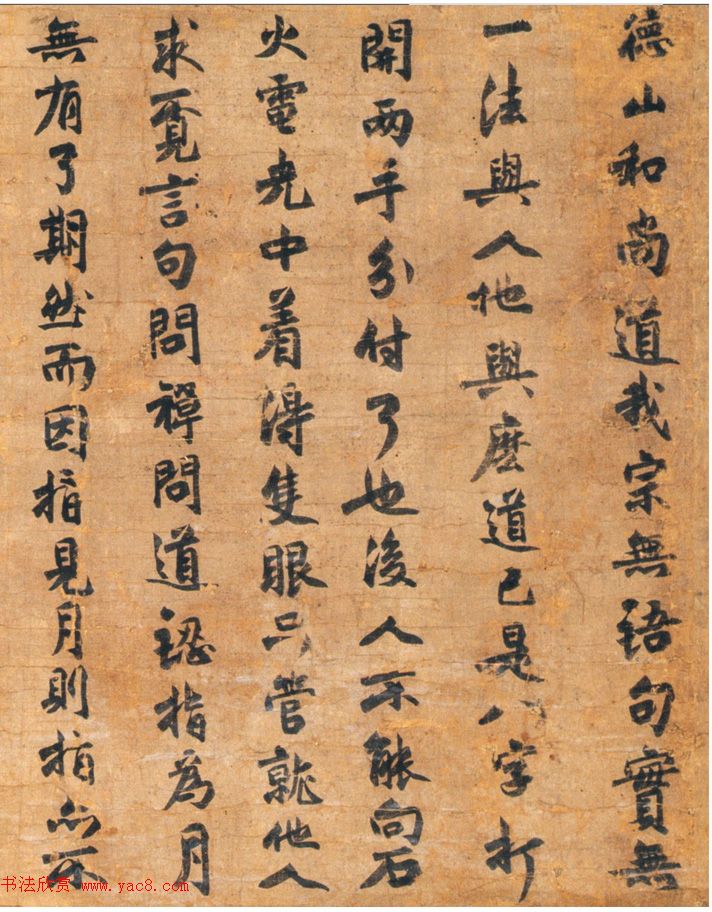 德山和尚道我宗無語句實無
一法與人他與麽道已是八字打
開兩手分付了也後人不能向石
火電光中着得隻眼只管就他人
求覓言句問禪問道認指為月
無有了期然而因指見月則指亦不
书法欣赏 www.yac8.com